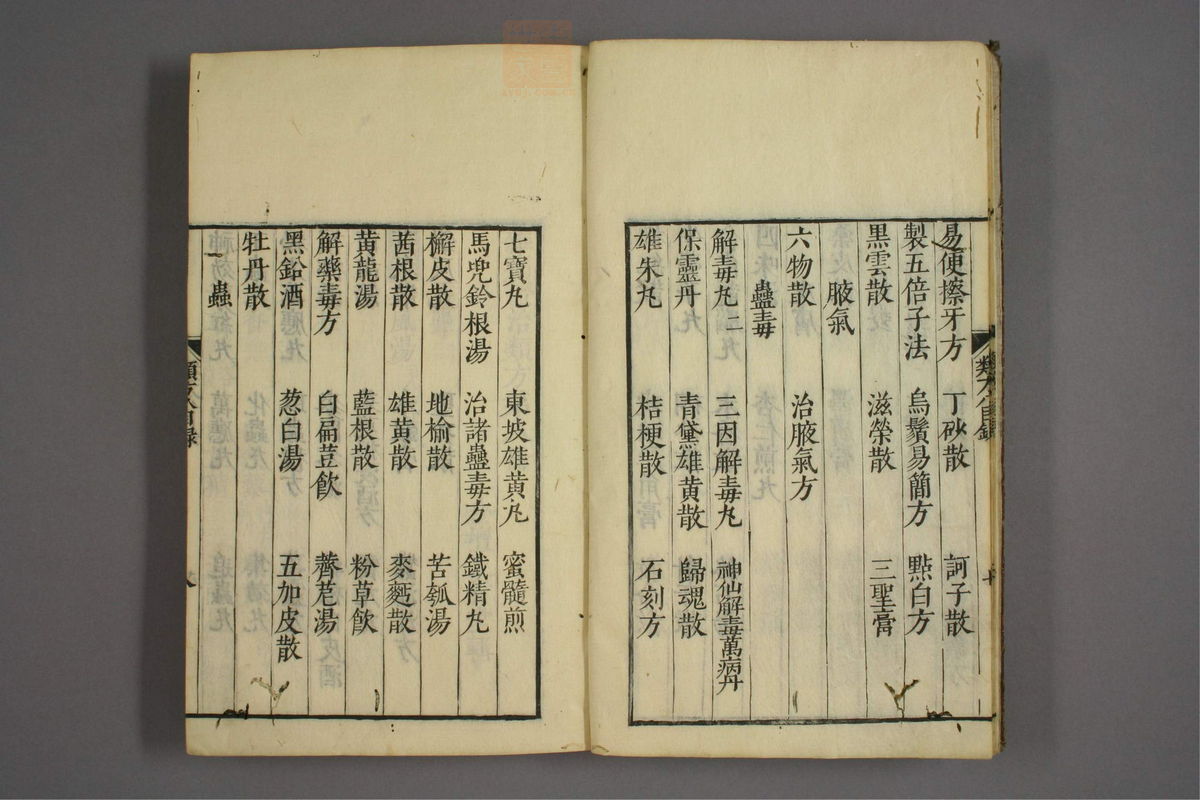 易便擦牙方 丁砂散 訶子散
製五倍子法 烏鬚易簡方 點白方
黑雲散 滋榮散 三聖膏
腋氣
六物散 治腋氣方
蠱毒
解毒丸二 三因解毒丸 神仙解毒萬病丹
保靈丹 青黛雄黃散 歸魂散
雄朱丸 桔梗散 石刻方
七寶丸 東坡雄黃丸 蜜髓煎
馬兜鈴根湯 治諸蠱毒方 鐵精丸
檞皮散 地榆散 苦瓠湯
茜根散 雄黃散 麥麪散
黃龍湯 藍根散 粉草飲
解藥毒方 白扁荳飲 薺苨湯
黑鉛酒 葱白湯 五加皮散
牡丹散
蟲